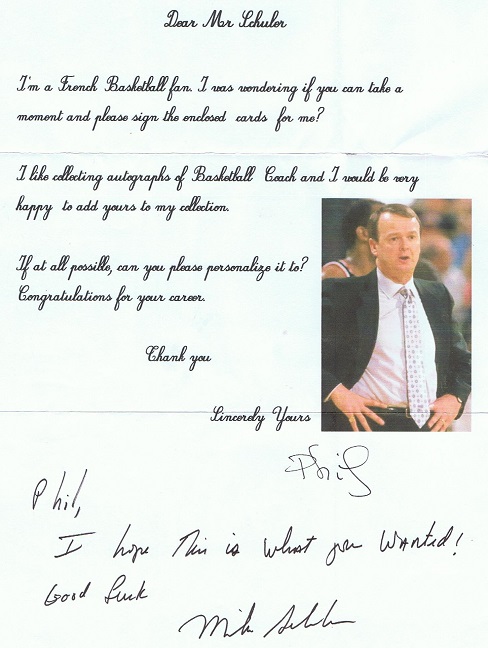 Dear Mr Schuler
I'm a French Basketball fan. I was wondering if you can take a
moment and please sign the enclosed cards for me?
I like collecting autographs of Basketball Coach and I would be very
happy to add yours to my collection.
If at all possible, can you please personalize it to?
Congratulations for your career.
Thank you
Sincerely Yours
Phil
Phil,
I hope this is what you wanted!
Good Luck
Mike Schuler